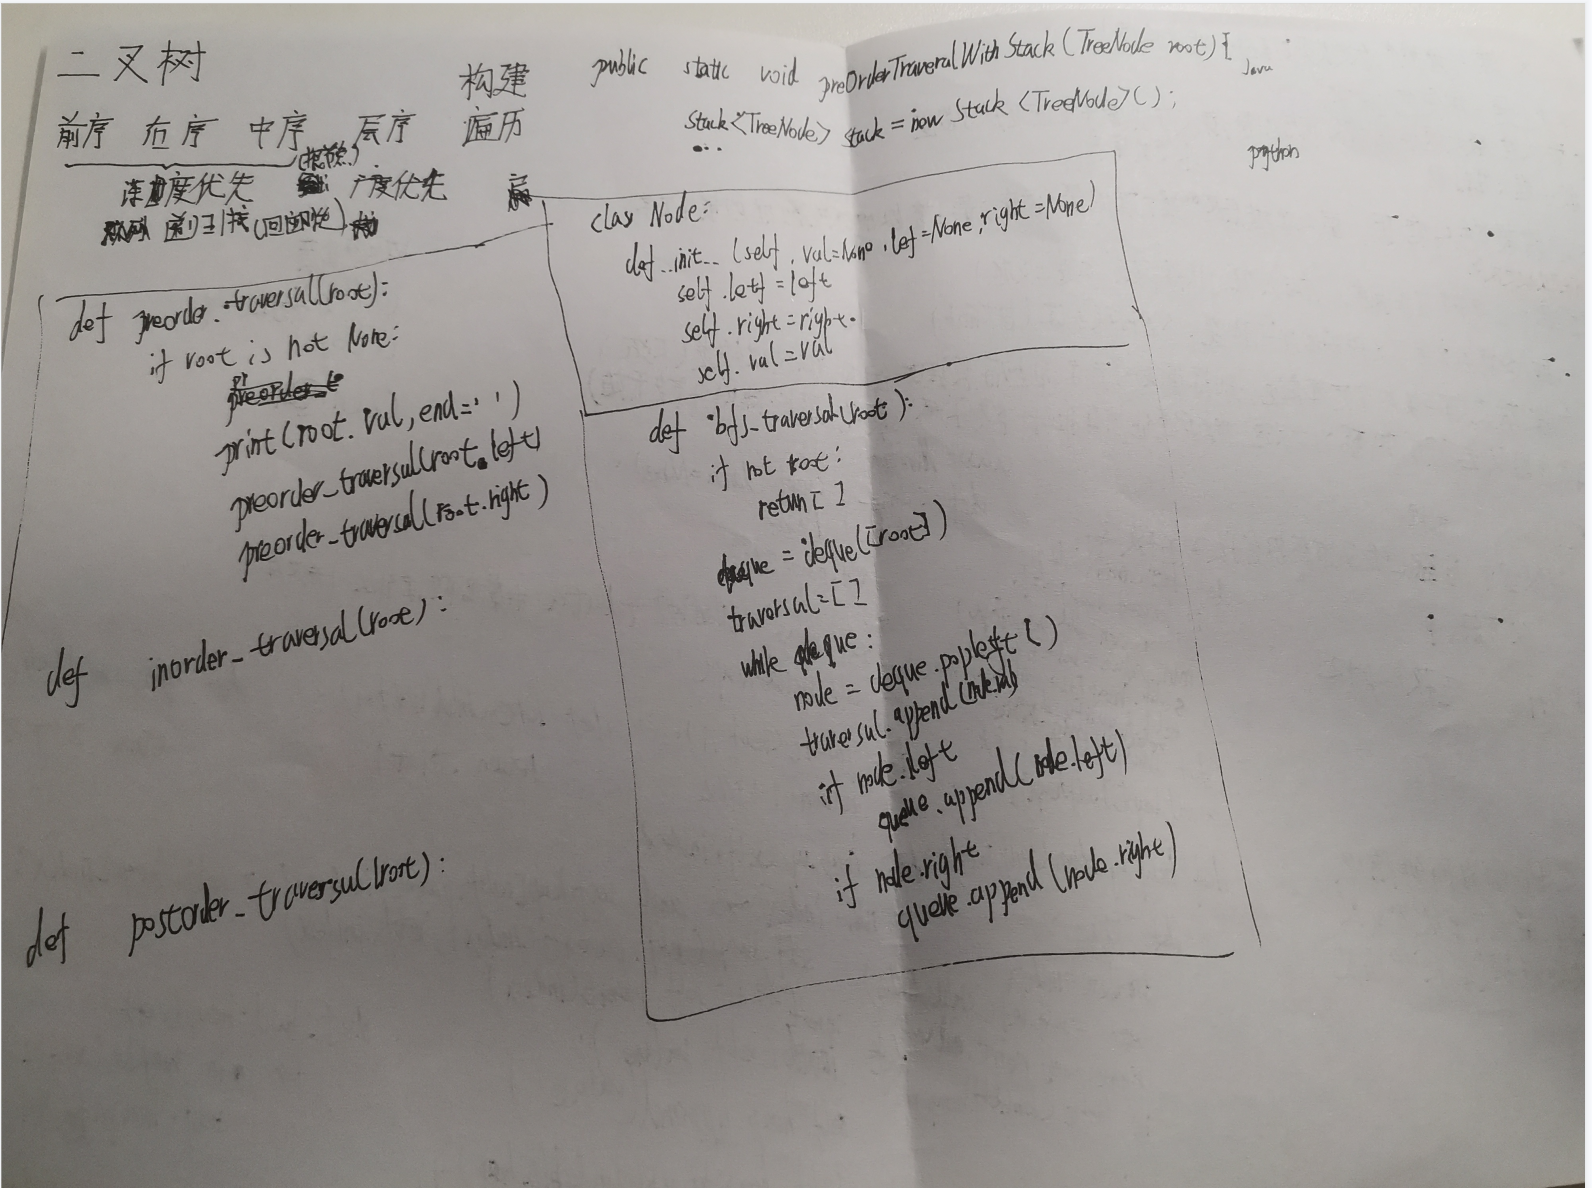 二叉树
构建
前序 右序 中序 层序 遍历
度优先 广度优先
(回溯)
public static void preOrderTraveralWithStack (TreeNode root) {
Java
Stack<TreeNode> stack = new Stack <TreeNode>();
...
python
class Node:
def __init__ (self, val=None, left=None, right=None)
self.left = left
self.right = right.
self.val = val
def preorder_traversal(root):
if root is not None:
print(root.val, end=' ')
preorder_traversal(root.left)
preorder_traversal(root.right)
def inorder_traversal(root):
def postorder_traversal(root):
def bfs_traversal(root):
if not root:
return [ ]
deque = deque([root])
traversal=[ ]
while deque:
node = deque.popleft ( )
traversal.append(node.val)
if node.left
queue.append(node.left)
if node.right
queue.append (node.right)